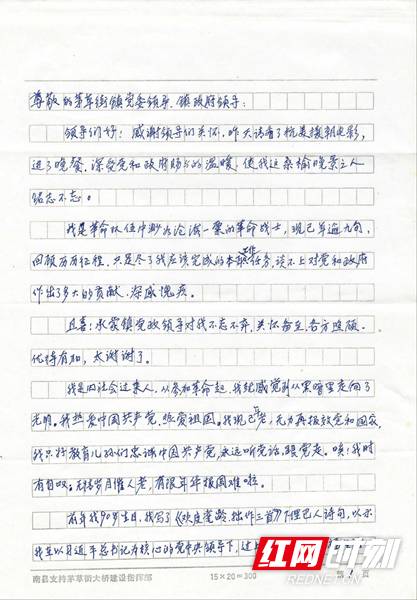 尊敬的茅草街镇党委领导、镇政府领导:
领导们好!感谢领导们关怀,昨天请看了抗美援朝电影,
进了晚餐,深受党和政府赐予的温暖,使我这桑榆晚景之人
铭志不忘。
我是革命队伍中渺如沧海一粟的革命战士,现已年逾九旬,
回顾历历征程,只是尽了我应该完成的本职任务,谈不上对党和政府
作出了多大的贡献,深感愧疚。
且喜:承蒙镇党政领导对我不忘不弃,关怀备至,各方照顾,
优待有加,太谢谢了。
我是旧社会过来人,从参加革命起,我就感觉到从黑暗里走向了
光明。我热爱中国共产党,热爱祖国。我现已年老,无力再报效党和国家,
我只好教育儿孙们忠诚中国共产党,永远听党话,跟党走。唉!我时
有自叹:无情岁月催人老,有限年华报国难啦。
前年我90岁生日,我写了《欢度耄龄,拙作三首》下里巴人诗句,以示
我在以习近平总书记为核心的党中央领导下,
南县支持茅草街大桥建设指挥部
15×20=300
第 页
红网时刻
REDNET.CN